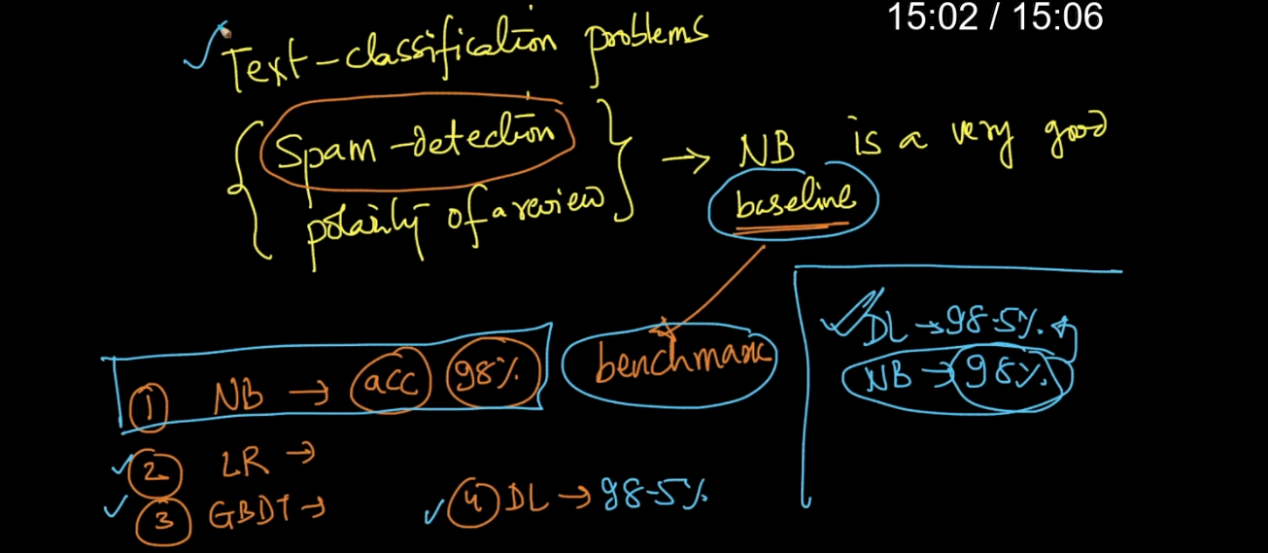 15:02 / 15:06
Text-classification problems
Spam-detection
polarity of a review
→ NB is a very good
baseline
benchmark
DL → 98.5%
NB → 98%
1 NB → acc 98%
2 LR →
3 GBDT →
4 DL → 98.5%